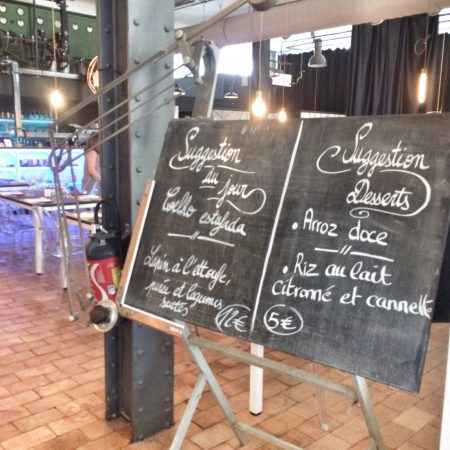 Suggestion
du jour
Coelho
estufada
Lapin à l'étoufe,
purée et légumes
sautés
12€
Suggestion
Desserts
• Arroz doce
• Riz au lait
citronné et cannelle
5€